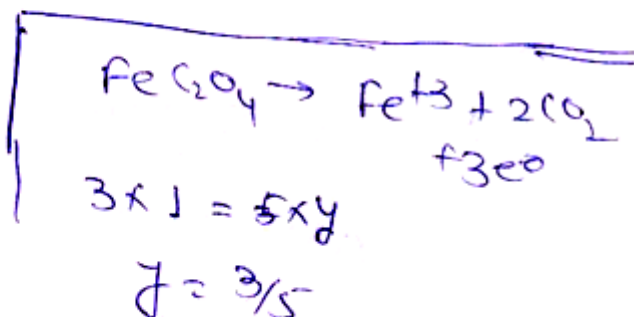 FeC₂O₄ → Fe⁺³ + 2CO₂
+3e⊖
3 × 1 = 5 × y
y = 3/5